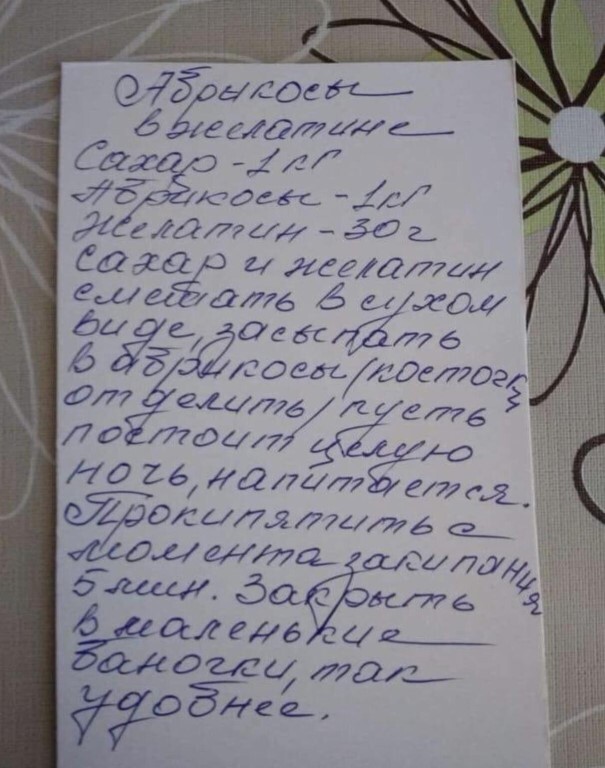 Абрикосы
в желатине
Сахар - 1 кг
Абрикосы - 1 кг
Желатин - 30 г
Сахар и желатин
смешать в сухом
виде, засыпать
в абрикосы /косточки
отделить/ пусть
постоит целую
ночь, напитается.
Прокипятить с
момента закипания
5 мин. Закрыть
в маленькие
баночки, так
удобнее.